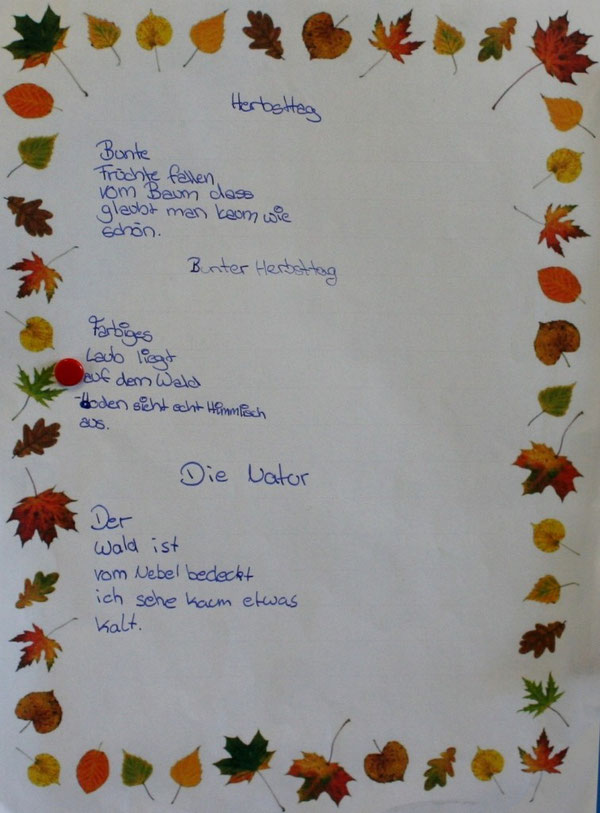 Herbsttag
Bunte
Früchte fallen
vom Baum dass
glaubt man kaum wie
schön.
Bunter Herbsttag
Farbiges
Laub liegt
auf dem Wald
-boden sieht echt Himmlisch
aus.
Die Natur
Der
Wald ist
vom Nebel bedeckt
ich sehe kaum etwas
Kalt.